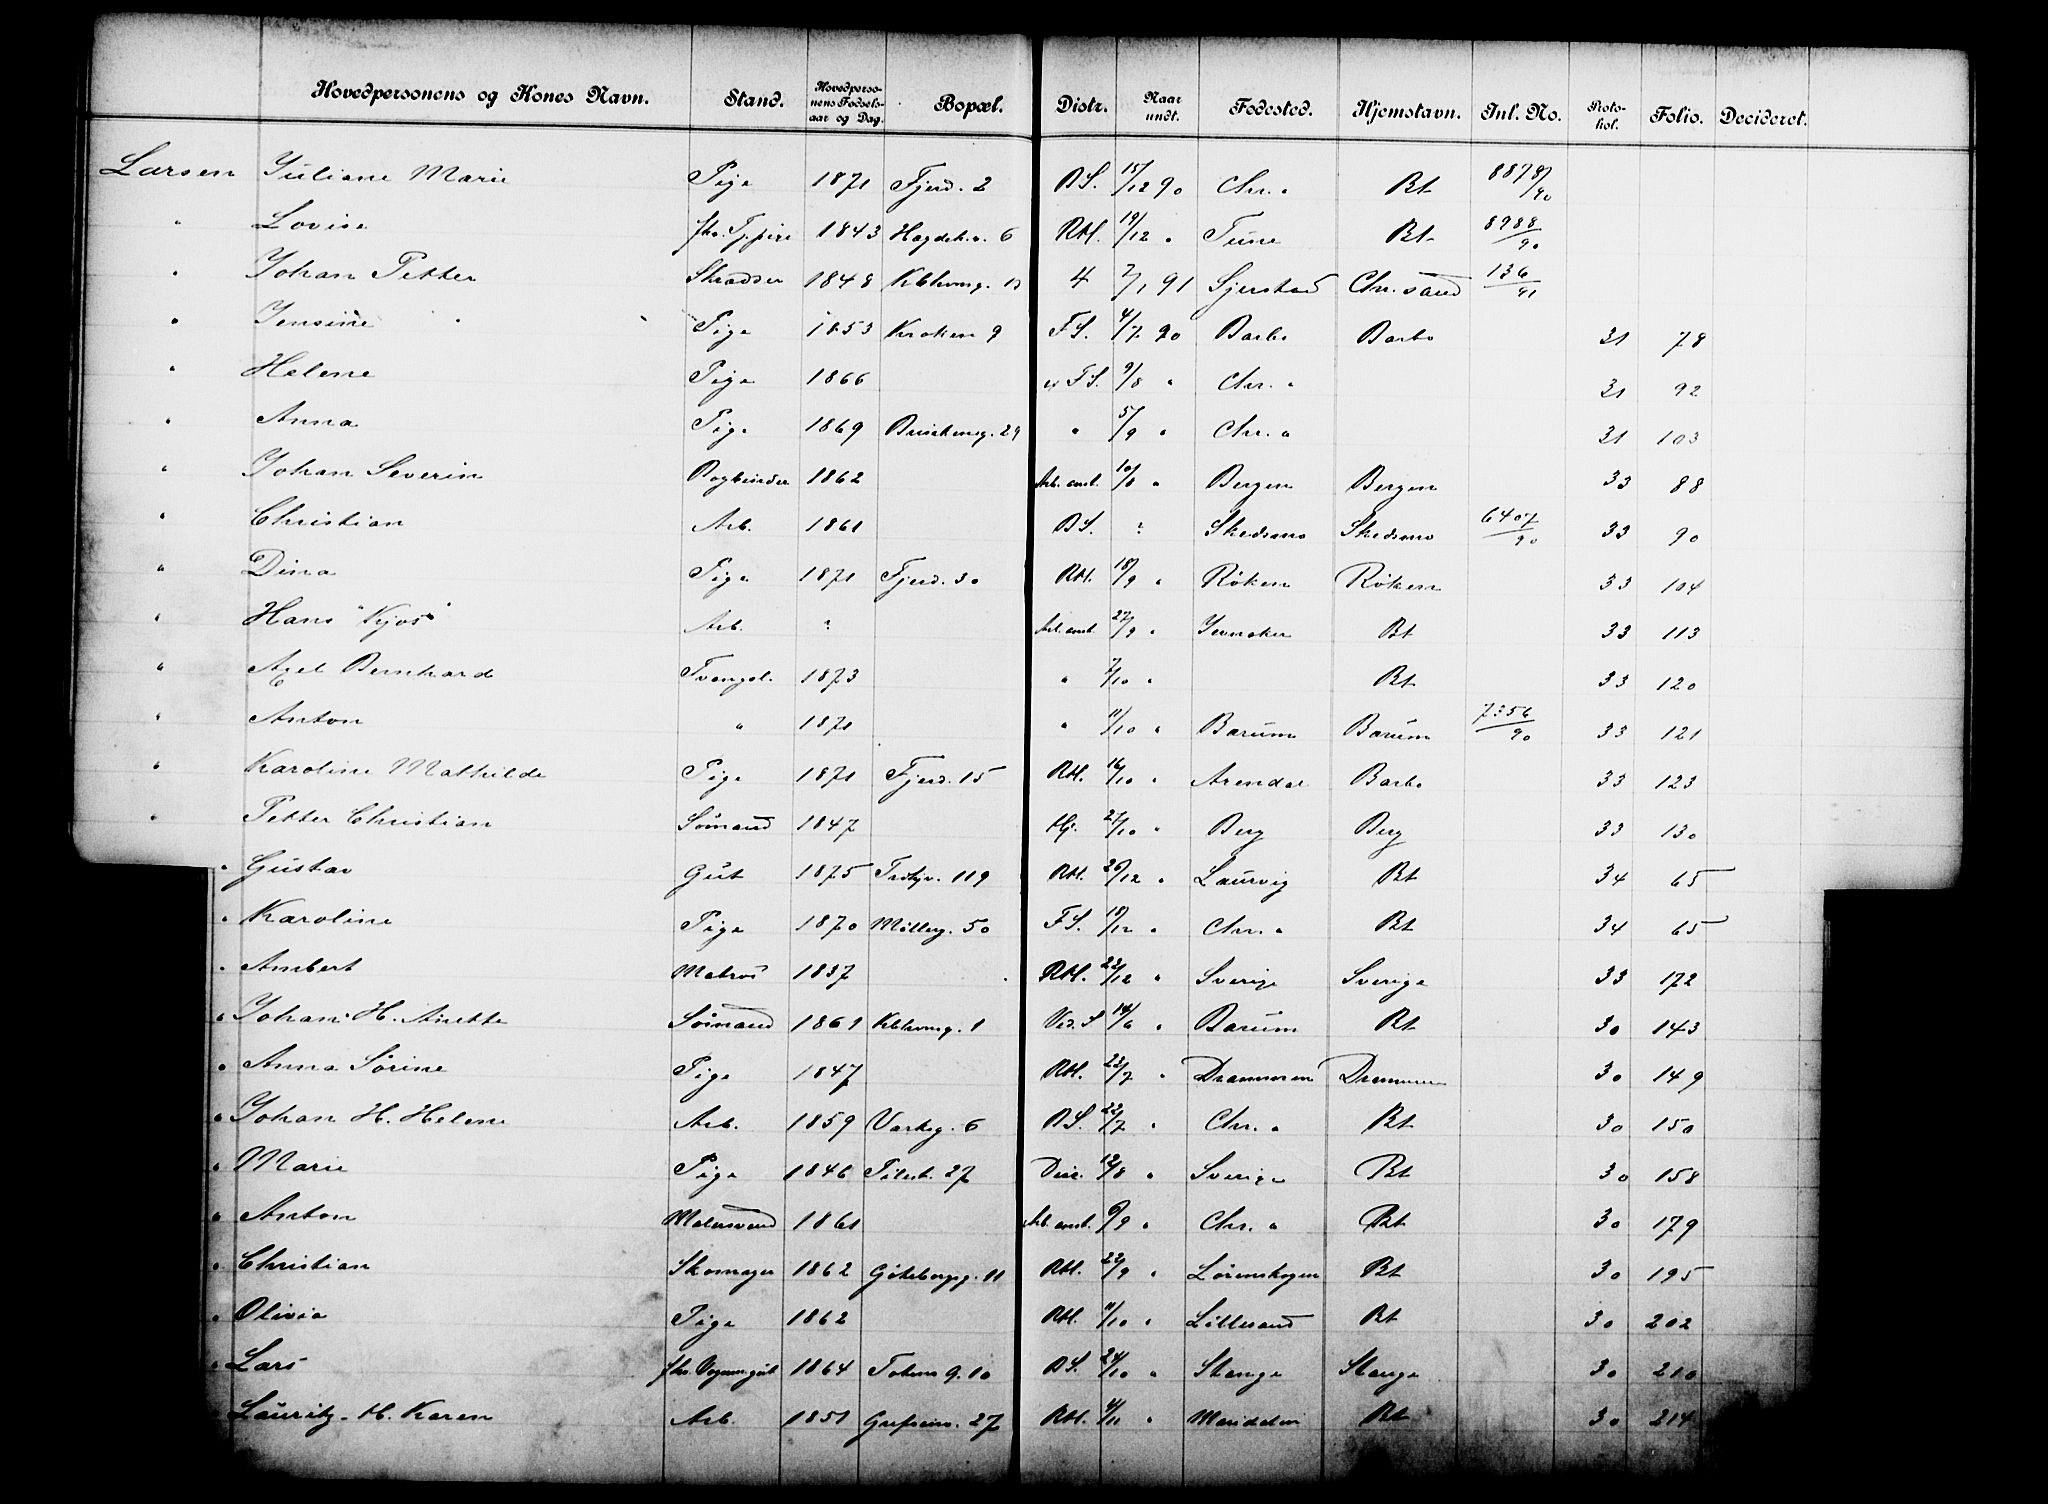 Hovedpersonens og Kones Navn. Stand. Hovedperso-nens Fødsels-aar og Dag. Bopæl. Distr. Naar undt. Fødested. Hjemstavn. Inl. No. Proto-kol. Folio. Decideret.
Larsen Juliane Marie Pige 1871 Fjerd. 2 BS. 15/12 90 Chr. a Bt 8878/90
" Lovise 1843 6 RM. 19/12 " Tune Bt 8988/90
" Johan Petter Skrædder 1848 4 7/1 91 Gjerstad Chr. sand 136/91
" Jensine Pige 1853 Kroken 9 FS. 4/7 90 Barbo Barbo 31 78
" Helene Pige 1866 FS. 9/8 " Chr. a 31 92
" Anna Pige 1869 29 " 5/9 " Chr. a 31 103
" Johan Severin Bogbinder 1862 Arb. anst. 10/8 " Bergen Bergen 33 88
" Christian Arb. 1861 BS. ? Skedsmo Skedsmo 6407/90 33 90
" Dina Pige 1871 Fjerd. 30 RM. 18/9 " Røken Røken 33 104
" Hans "Kjos" Arb. ? Arb. anst. 27/9 " Jevnaker Bt 33 113
" Axel Bernhard Tvangsl. 1873 " 7/10 " Bt 33 120
" Anton " 1871 " 11/10 " Bærum Bærum 7356/90 33 121
" Karoline Mathilde Pige 1871 Fjerd. 15 RM. 16/10 " Arendal Barbo 33 123
" Petter Christian Sömand 1847 27/10 " Berg Berg 33 130
" Gustav Gut 1875 119 RM. 20/12 " Laurvig Bt 34 65
" Karoline Pige 1870 Möllerg. 50 FS. 18/12 " Chr. a Bt 34 65
" Ambert Matros 1837 RM. 22/12 " Sverige Sverige 33 172
" Johan H. Anette Sömand 1861 1 14/6 " Bærum Bt 30 143
" Anna Sörine Pige 1847 RM. 22/7 " Drammen Drammen 30 149
" Johan H. Helene Arb. 1859 6 BS. 22/7 " Chr. a Bt 30 150
" Marie Pige 1846 Pilest. 27 12/8 " Sverige Bt 30 158
" Anton Malersvend 1861 Arb. anst. 6/9 " Chr. a Bt 30 179
" Christian Skomager 1862 Göteborgg. 11 RM. 22/9 " Lörenskogen Bt 30 195
" Olivia Pige 1862 RM. 11/10 " Lillesand Bt 30 202
" Lars 1864 BS. 24/10 " Stange Stange 30 210
" Lauritz. H. Karen Arb. 1851 Grefsenv. 27 RM. 4/11 " Maridalen Bt 30 214